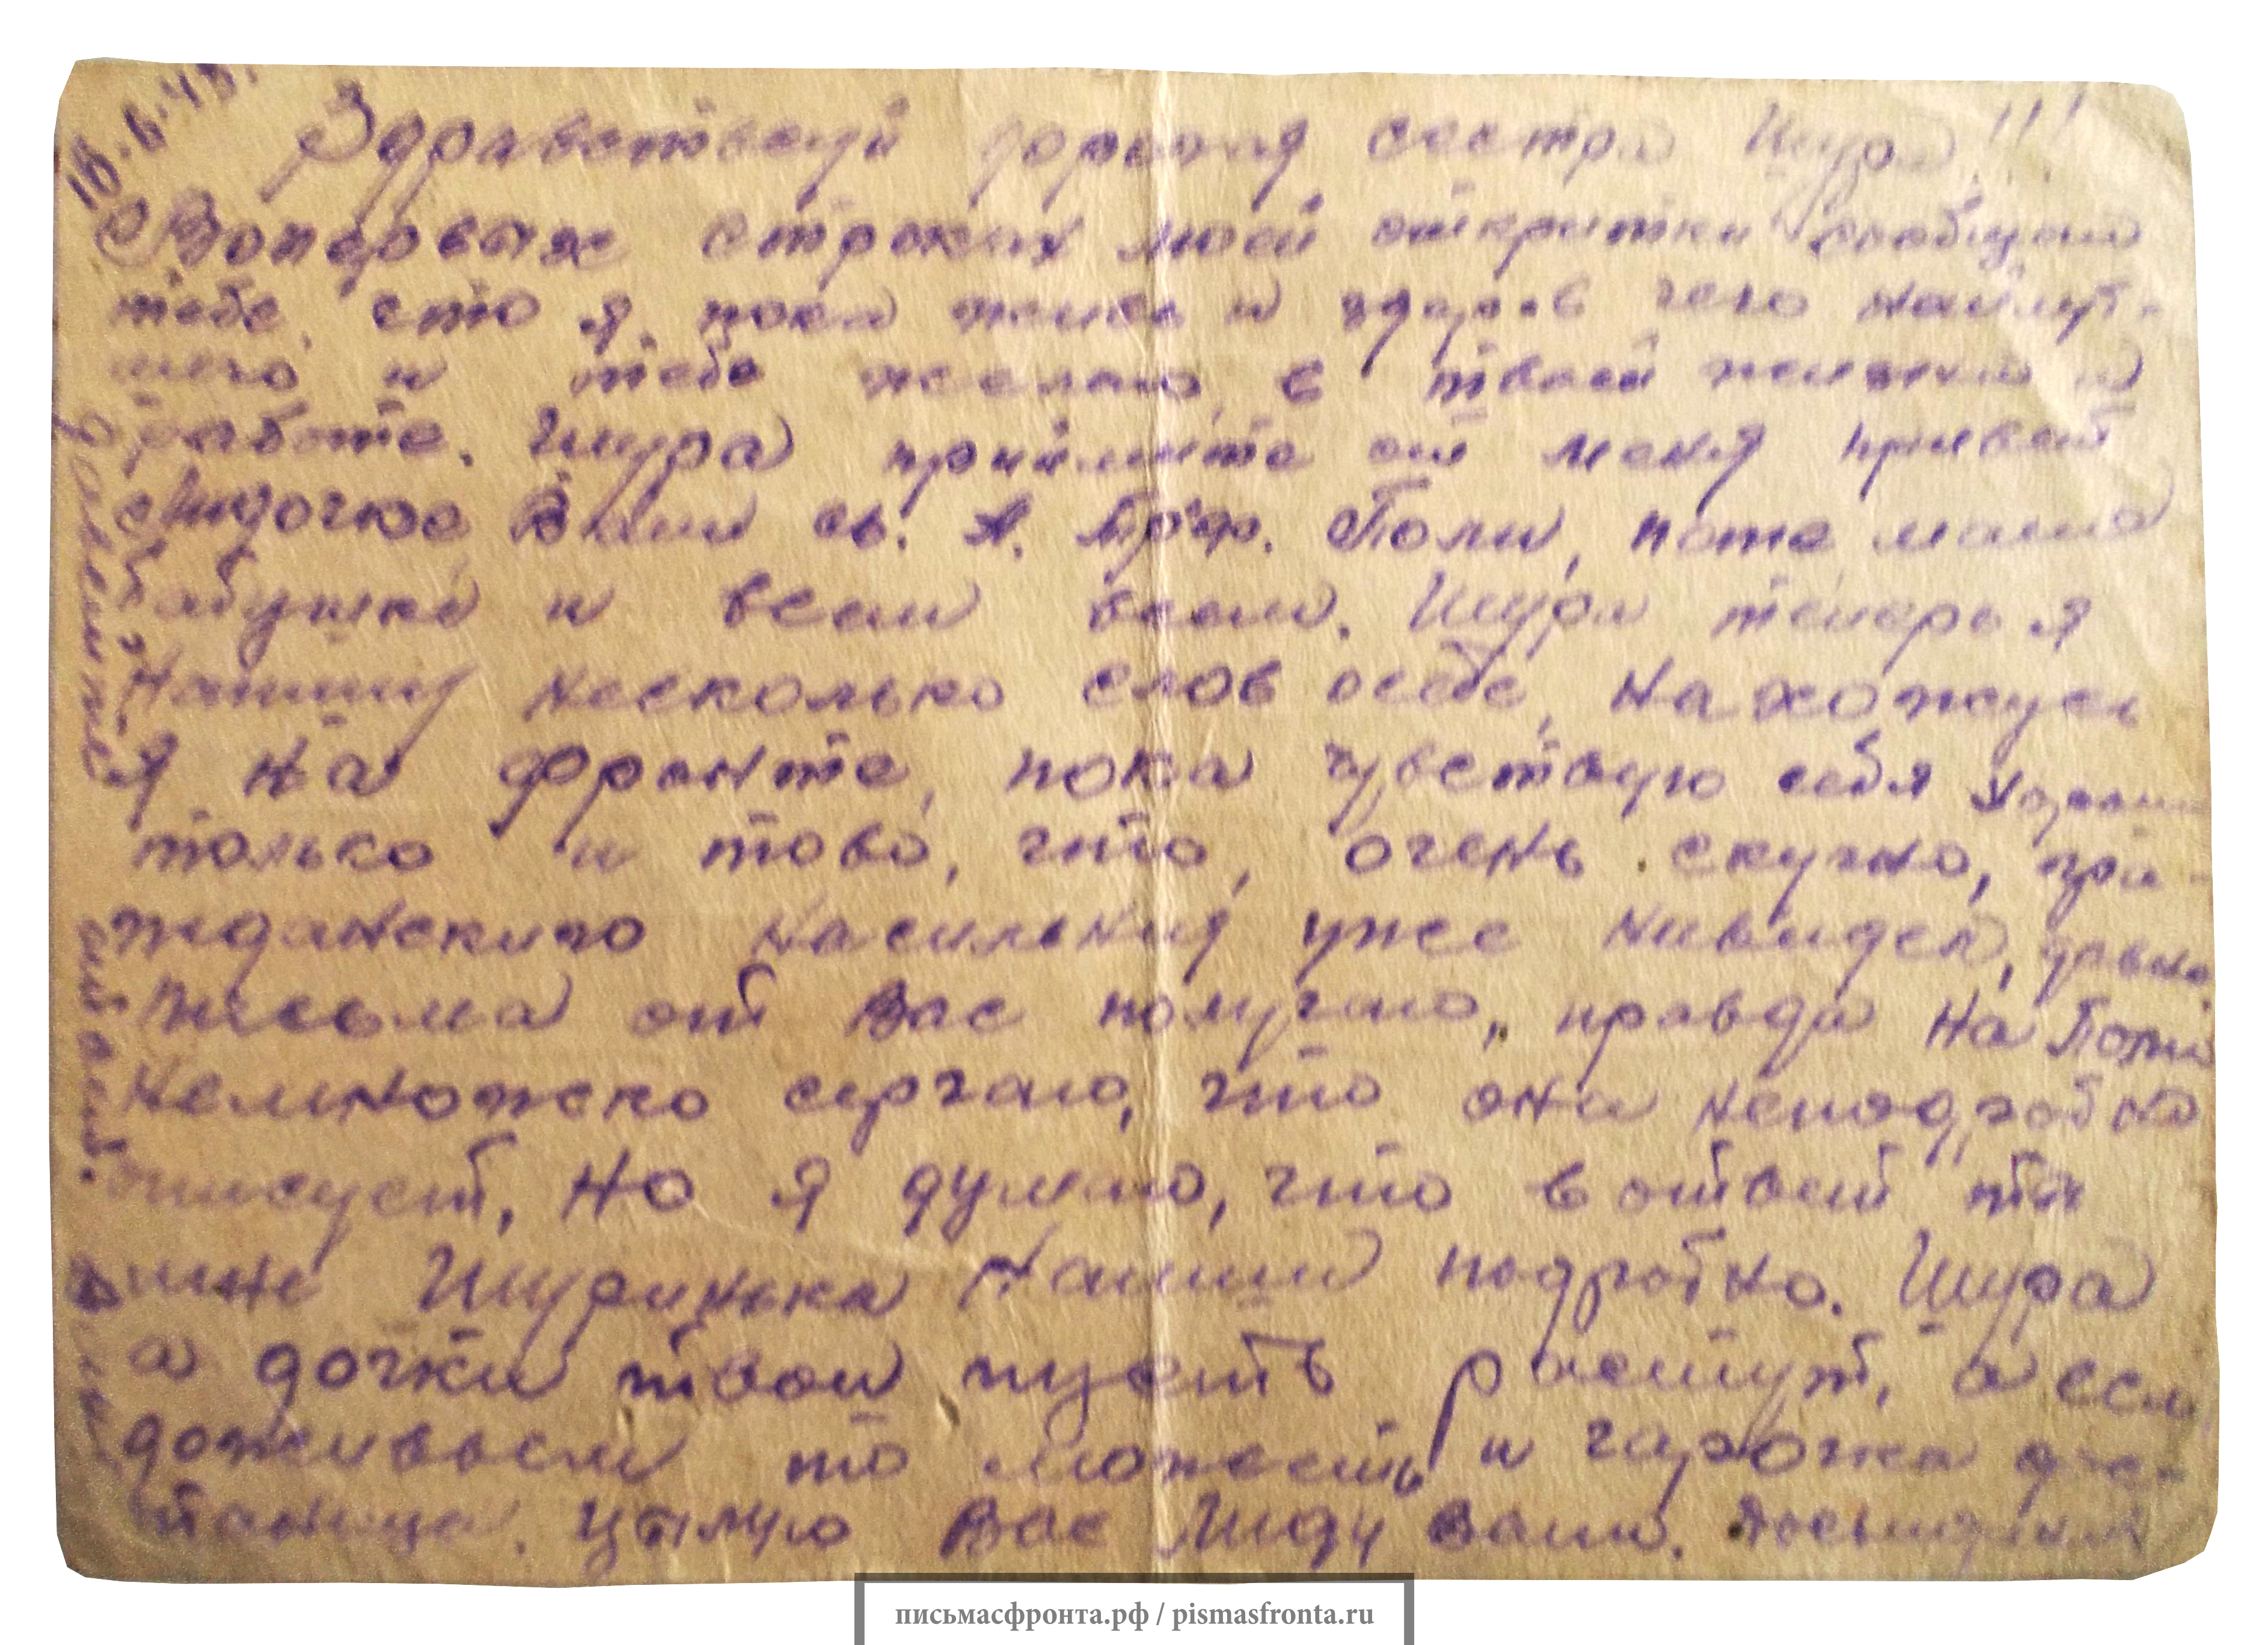 Здравствуй дорогая сестра Шура!!!
Вопервых строках моей открытки сообщаю
тебе, что я пока жив и здоров чего найлут-
шего и тебе желаю, в твоей жизни и
работе. Шура примите от меня привет
Лидочке Вали Поли, мама
бабушке и всем всем. Шура теперь я
Напишу несколько слов осебе, Нахожусь
я на фронте, пока чувствую себя
только и тово, что, очень скучно, гра-
жданского насильния уже нивидел, давно
письма от Вас получаю, правда на
немножко серчаю, что она неподробно
описует, но я думаю, что в ответ ты
мне Шуринька Напиши подробно. Шура
а дочки твои пусть растут, а если
доживьем то можеть и
Цылую Вас Лиду Валю. Досьвиданя
письмасфронта.рф / pismasfronta.ru